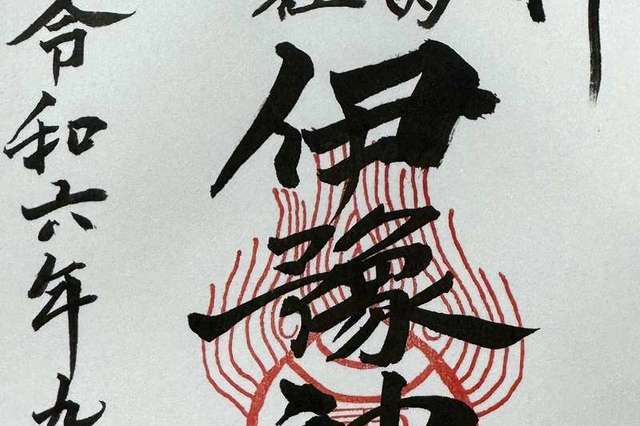 伊豫神
令和六年九